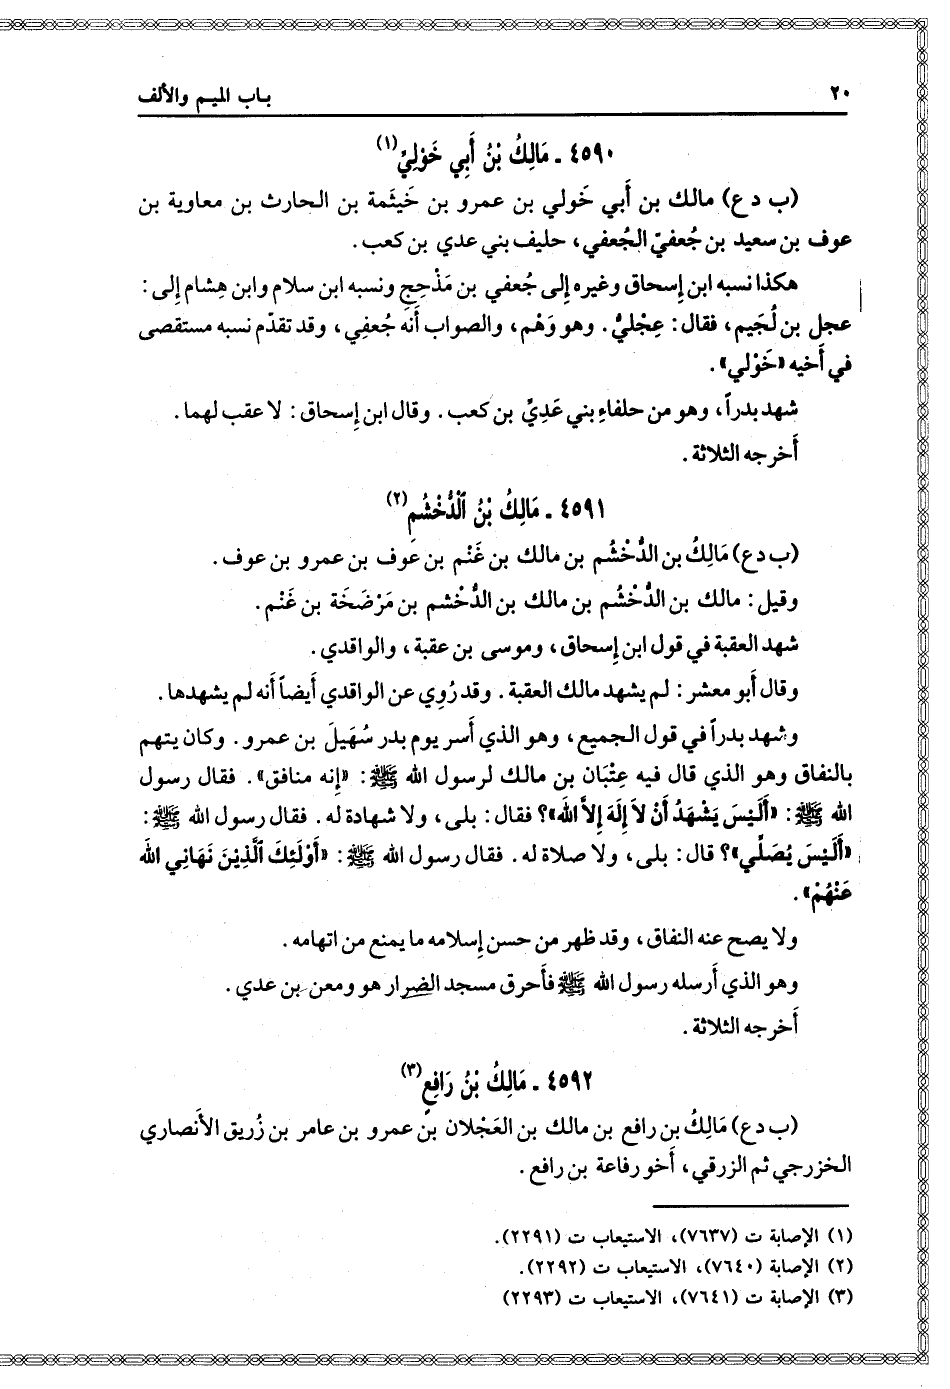 ٢٠ باب الميم والألف
٤٥٩٠ ـ مَالِكُ بْنُ أَبِي خَوْلِيّ(١)
(ب د ع) مالك بن أَبي خَولي بن عمرو بن خَيثَمة بن الحارث بن معاوية بن
عوف بن سعيد بن جُعفيّ الجُعفي، حليف بني عدي بن كعب.
هكذا نسبه ابن إِسحاق وغيره إِلى جُعفي بن مَذْحِج ونسبه ابن سلام وابن هِشام إِلى:
عجل بن لُجَيم، فقال: عِجْليُّ. وهو وَهْم، والصواب أَنه جُعفِي، وقد تقدّم نسبه مستقصى
في أَخيه «خَوْلي».
شهد بدراً، وهو من حلفاءِ بني عَدِيِّ بن كعب. وقال ابن إِسحاق: لا عقب لهما.
أَخرجه الثلاثة.
٤٥٩١ ـ مَالِكُ بْنُ ٱلْدُّخْشُمِ(٢)
(ب د ع) مَالِكُ بن الدُّخْشُم بن مالك بن غَنْم بن عَوف بن عمرو بن عوف.
وقيل: مالك بن الدُّخْشُم بن مالك بن الدُّخْشم بن مَرْضَخَة بن غَنْم.
شهد العقبة في قول ابن إِسحاق، وموسى بن عقبة، والواقدي.
وقال أَبو معشر: لم يشهد مالك العقبة. وقد رُوِي عن الواقدي أَيضاً أَنه لم يشهدها.
وشهد بدراً في قول الجميع، وهو الذي أَسر يوم بدر سُهَيلَ بن عمرو. وكان يتهم
بالنفاق وهو الذي قال فيه عِتْبَان بن مالك لرسول الله ﷺ: «إِنه منافق». فقال رسول
الله ﷺ: «أَلَيسَ يَشْهَدُ أَنْ لاَ إِلَهَ إِلاَّ اللَّه»؟ فقال: بلى، ولا شهادة له. فقال رسول الله ﷺ:
«أَلَيْسَ يُصَلِّي»؟ قال: بلى، ولا صلاة له. فقال رسول الله ﷺ: «أَوْلَئِكَ ٱلَّذِيْنَ نَهَانِي الله
عَنْهُمْ».
ولا يصح عنه النفاق، وقد ظهر من حسن إِسلامه ما يمنع من اتهامه.
وهو الذي أَرسله رسول الله ﷺ فأَحرق مسجد الضرار هو ومعن بن عدي.
أَخرجه الثلاثة.
٤٥٩٢ ـ مَالِكُ بْنُ رَافِعٍ(٣)
(ب د ع) مَالِكُ بن رافع بن مالك بن العَجْلان بن عمرو بن عامر بن زُريق الأَنصاري
الخزرجي ثم الزرقي، أَخو رفاعة بن رافع.
(١) الإصابة ت (٧٦٣٧)، الاستيعاب ت (٢٢٩١).
(٢) الإصابة (٧٦٤٠)، الاستيعاب ت (٢٢٩٢).
(٣) الإصابة ت (٧٦٤١)، الاستيعاب ت (٢٢٩٣)